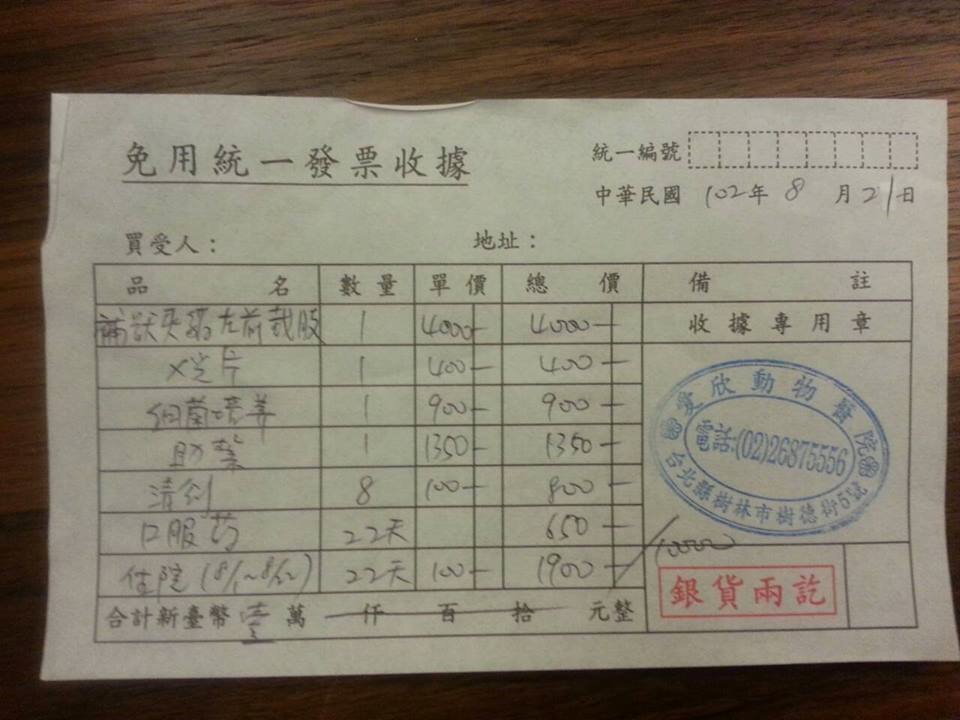 免用統一發票收據
統一編號
中華民國 102年 8 月 21日
買受人： 地址：
品名 數量 單價 總價 備註
左前截肢 1 4000- 4000- 收據專用章
X光片 1 400- 400-
細菌培養 1 900- 900-
1 1350- 1350-
清創 8 100- 800-
口服药 22天 650-
住院 (8/1~8/22) 22天 100- 1900- 10000
合計新臺幣 壹 萬 仟 百 拾 元整
愛欣動物醫院
電話:(02)26875556
台北縣樹林市樹德街5號
銀貨兩訖